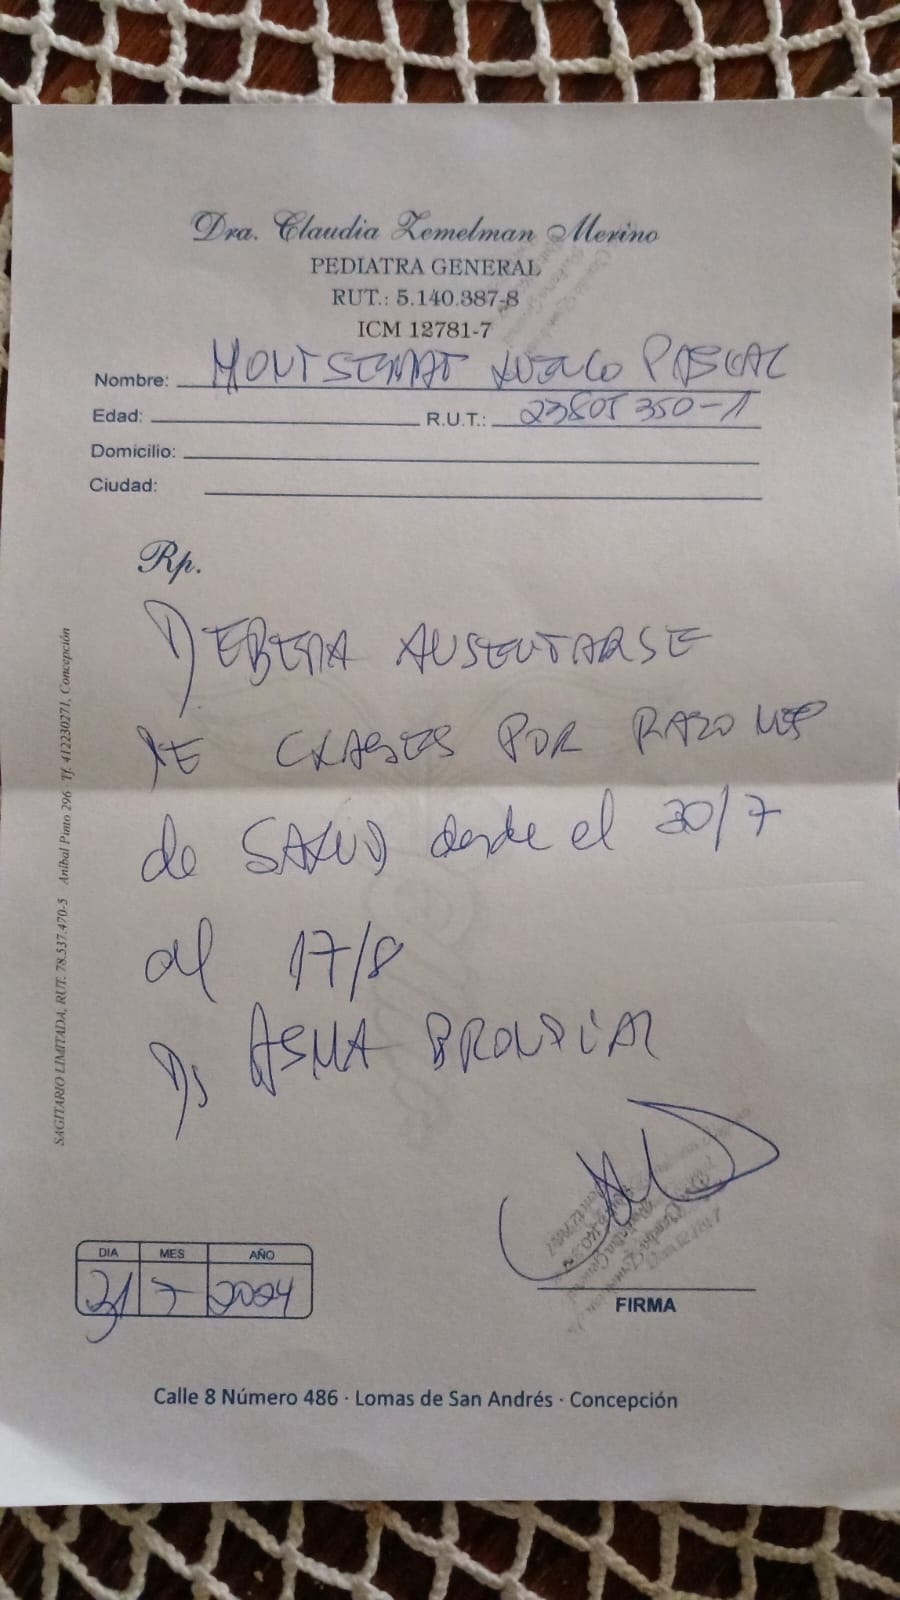 Dra. Claudia Zemelman Merino
PEDIATRA GENERAL
RUT.: 5.140.387-8
ICM 12781-7
Nombre: MONTSERRAT PASCAL
Edad: R.U.T.: 23805350-1
Domicilio:
Ciudad:
Rp.
DEBERA AUSENTARSE
DE CLASES POR RAZONES
de SALUD desde el 30/7
al 17/8
Ds ASMA BRONQUIAL
DIA MES AÑO
31 7 2024
FIRMA
Calle 8 Número 486 · Lomas de San Andrés · Concepción
SAGITARIO LIMITADA, RUT. 78.537.470-5 Aníbal Pinto 296 Tf. 412230271, Concepción